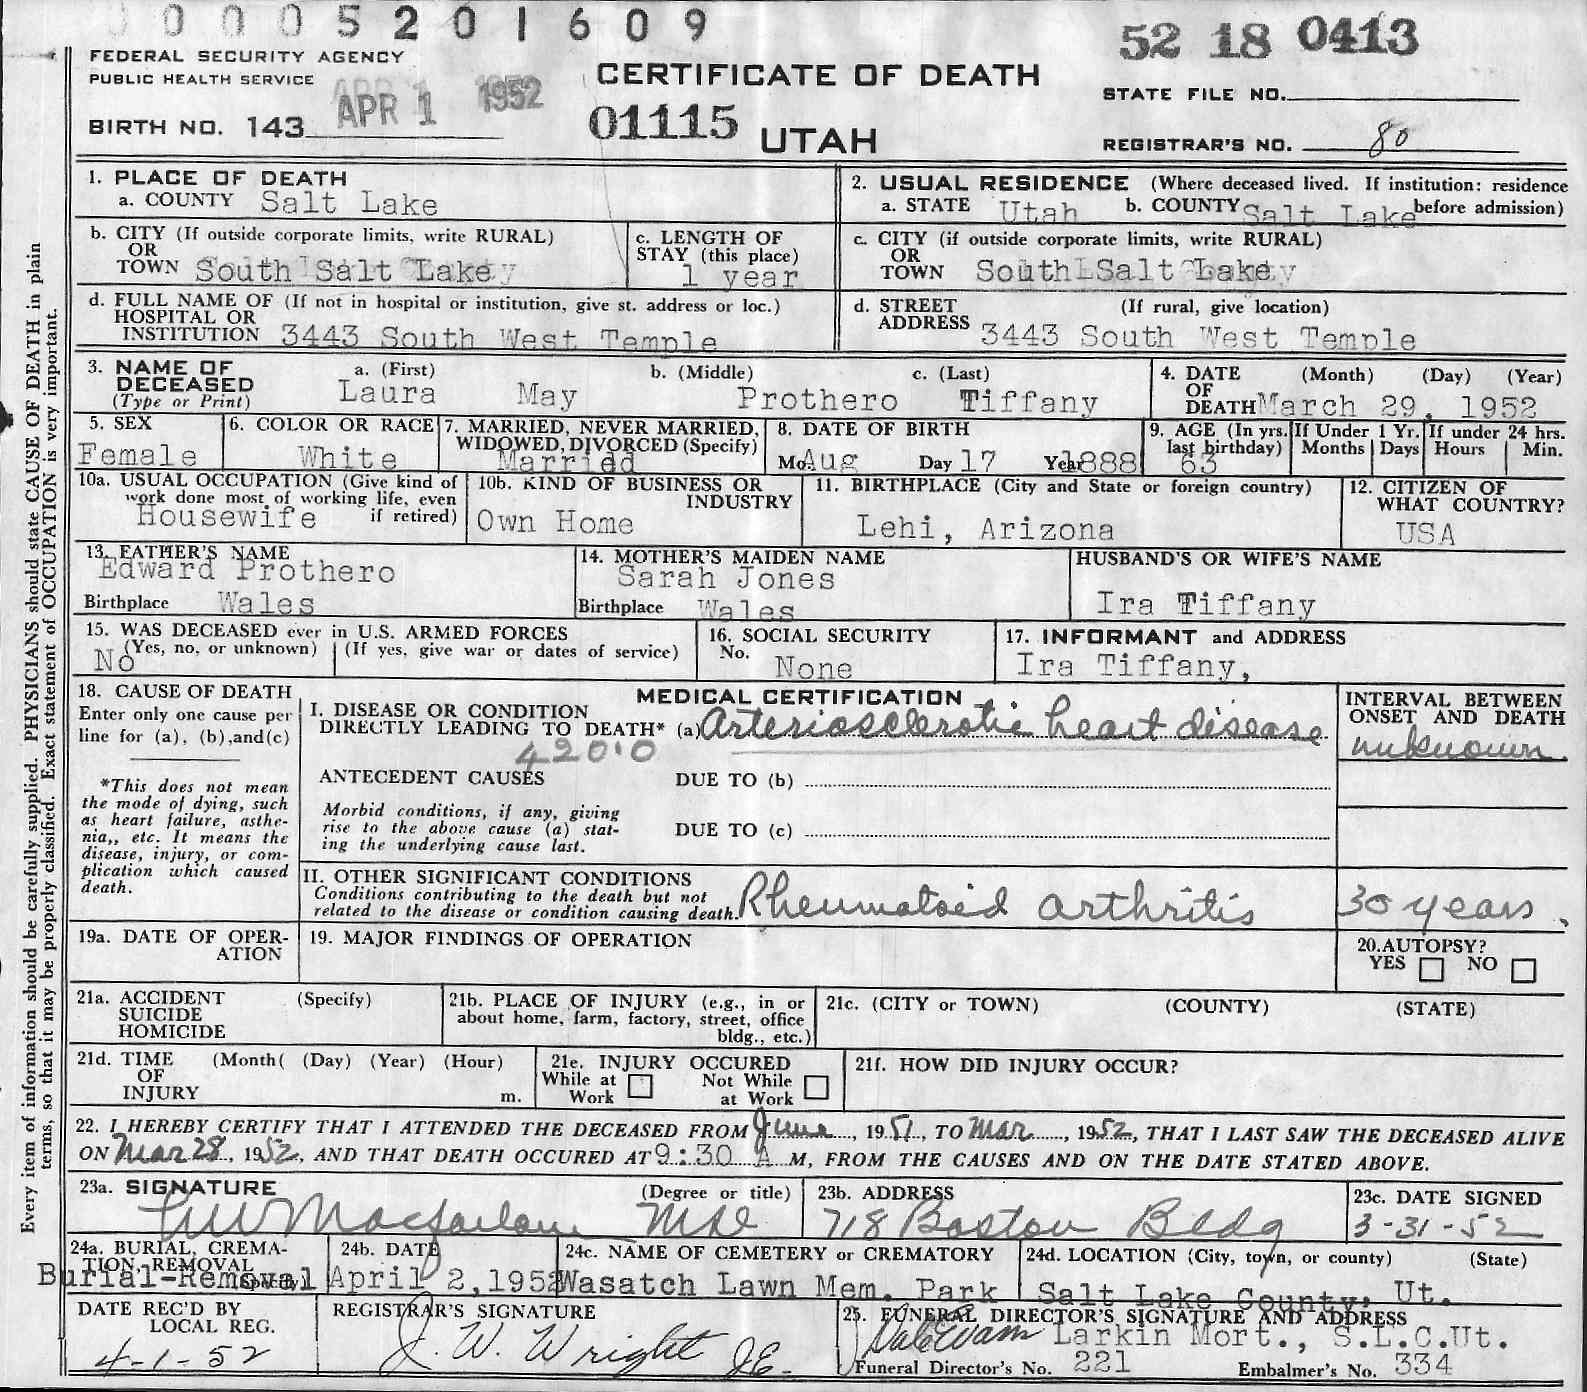 0005201609
52 18 0413
FEDERAL SECURITY AGENCY
PUBLIC HEALTH SERVICE
APR 1 1952
CERTIFICATE OF DEATH
STATE FILE NO.
BIRTH NO. 143
01115 UTAH
REGISTRAR'S NO. 80
1. PLACE OF DEATH
a. COUNTY Salt Lake
2. USUAL RESIDENCE (Where deceased lived. If institution: residence before admission)
a. STATE Utah b. COUNTY Salt Lake
b. CITY (If outside corporate limits, write RURAL)
OR
TOWN South Salt Lake
c. LENGTH OF
STAY (this place)
1 year
c. CITY (if outside corporate limits, write RURAL)
OR
TOWN South Salt Lake
d. FULL NAME OF (If not in hospital or institution, give st. address or loc.)
HOSPITAL OR
INSTITUTION 3443 South West Temple
d. STREET (If rural, give location)
ADDRESS 3443 South West Temple
3. NAME OF
DECEASED
(Type or Print)
a. (First) b. (Middle) c. (Last)
Laura May Prothero Tiffany
4. DATE (Month) (Day) (Year)
OF
DEATH March 29, 1952
5. SEX
Female
6. COLOR OR RACE
White
7. MARRIED, NEVER MARRIED,
WIDOWED, DIVORCED (Specify)
Married
8. DATE OF BIRTH
Mo. Aug Day 17 Year 1888
9. AGE (In yrs.
last birthday)
63
If Under 1 Yr.
Months Days
If under 24 hrs.
Hours Min.
10a. USUAL OCCUPATION (Give kind of
work done most of working life, even
if retired)
Housewife
10b. KIND OF BUSINESS OR
INDUSTRY
Own Home
11. BIRTHPLACE (City and State or foreign country)
Lehi, Arizona
12. CITIZEN OF
WHAT COUNTRY?
USA
13. FATHER'S NAME
Edward Prothero
Birthplace Wales
14. MOTHER'S MAIDEN NAME
Sarah Jones
Birthplace Wales
HUSBAND'S OR WIFE'S NAME
Ira Tiffany
15. WAS DECEASED ever in U.S. ARMED FORCES
(Yes, no, or unknown) (If yes, give war or dates of service)
No
16. SOCIAL SECURITY
No.
None
17. INFORMANT and ADDRESS
Ira Tiffany,
18. CAUSE OF DEATH
Enter only one cause per
line for (a), (b),and(c)
*This does not mean
the mode of dying, such
as heart failure, asthe-
nia,, etc. It means the
disease, injury, or com-
plication which caused
death.
MEDICAL CERTIFICATION
I. DISEASE OR CONDITION
DIRECTLY LEADING TO DEATH* (a) Arteriosclerotic heart disease
4200
INTERVAL BETWEEN
ONSET AND DEATH
unknown
ANTECEDENT CAUSES DUE TO (b)
Morbid conditions, if any, giving
rise to the above cause (a) stat-
ing the underlying cause last.
DUE TO (c)
II. OTHER SIGNIFICANT CONDITIONS
Conditions contributing to the death but not
related to the disease or condition causing death.
Rheumatoid arthritis
30 years.
19a. DATE OF OPER-
ATION
19. MAJOR FINDINGS OF OPERATION
20.AUTOPSY?
YES NO
21a. ACCIDENT (Specify)
SUICIDE
HOMICIDE
21b. PLACE OF INJURY (e.g., in or
about home, farm, factory, street, office
bldg., etc.)
21c. (CITY or TOWN) (COUNTY) (STATE)
21d. TIME (Month( (Day) (Year) (Hour)
OF
INJURY m.
21e. INJURY OCCURED
While at Work Not While at Work
21f. HOW DID INJURY OCCUR?
22. I HEREBY CERTIFY THAT I ATTENDED THE DECEASED FROM June, 1951, TO Mar, 1952, THAT I LAST SAW THE DECEASED ALIVE
ON Mar 28, 1952, AND THAT DEATH OCCURED AT 9:30 A M, FROM THE CAUSES AND ON THE DATE STATED ABOVE.
23a. SIGNATURE (Degree or title)
Macfarlane
23b. ADDRESS
718 Boston Bldg
23c. DATE SIGNED
3-31-52
24a. BURIAL, CREMA-
TION, REMOVAL
(Specify)
Burial-Removal
24b. DATE
April 2,1952
24c. NAME OF CEMETERY or CREMATORY
Wasatch Lawn Mem. Park
24d. LOCATION (City, town, or county) (State)
Salt Lake County, Ut.
DATE REC'D BY
LOCAL REG.
4-1-52
REGISTRAR'S SIGNATURE
J. W. Wright JE.
25. FUNERAL DIRECTOR'S SIGNATURE AND ADDRESS
Dale Evans Larkin Mort., S.L.C.Ut.
Funeral Director's No. 221 Embalmer's No. 334
Every item of information should be carefully supplied. PHYSICIANS should state CAUSE OF DEATH in plain
terms, so that it may be properly classified. Exact statement of OCCUPATION is very important.